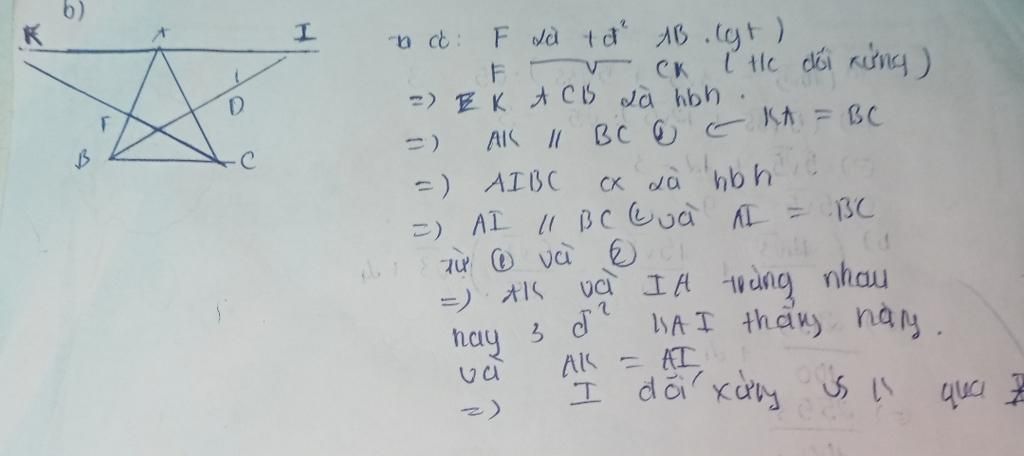 b)
K A I
F D
B C
ta có: F là tđ² AB (gt)
F CK (t/c đối xứng)
=) K A CB là hbh.
=) AK // BC ① ← KA = BC
=) AIBC cx là hbh
=) AI // BC ② và AI = BC
từ ① và ②
=) AK và IA trùng nhau
hay 3 đ² KAI thẳng hàng.
và AK = AI
=) I đối xứng vs K qua